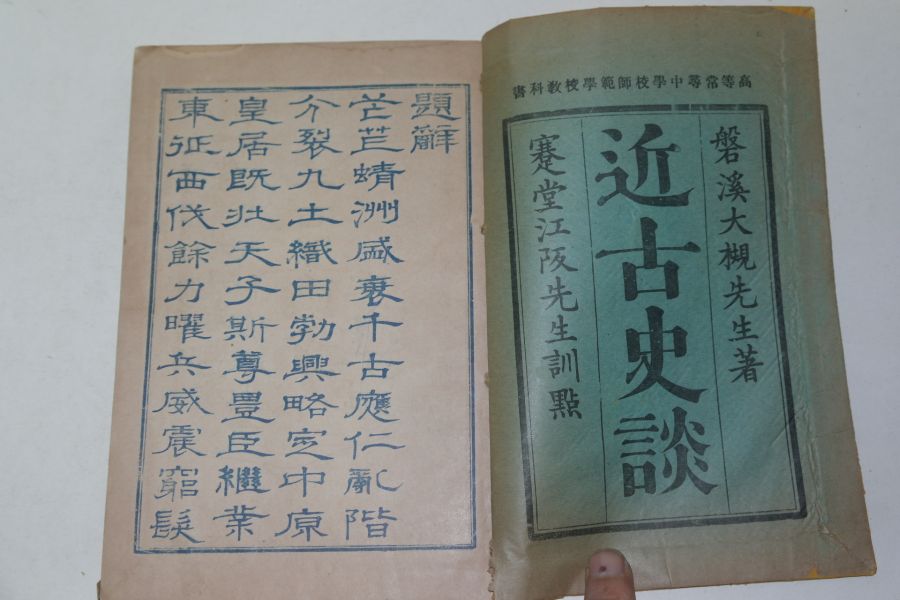 高等常尋中學校師範學校敎科書
磐溪大槻先生著
近古史談
蹇堂江阪先生訓點
題辭
芒芒蜻洲盛衰千古應仁亂階
尒裂九土織田勃興略定中原
皇居既壯天子斯尊豊臣繼業
東征西伐餘力曜兵威震窮髮